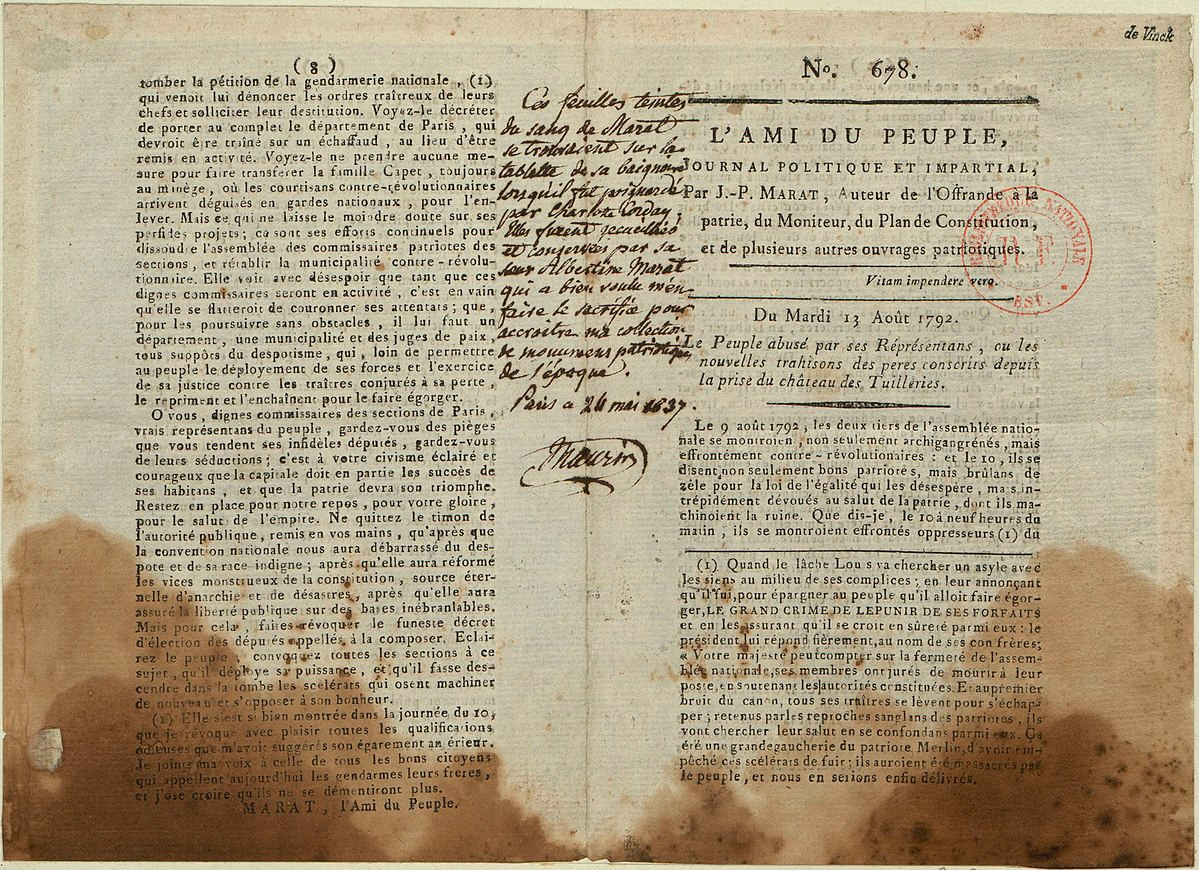 de Vinck
( 8 )
tomber la pétition de la gendarmerie nationale , (1)
qui venoit lui dénoncer les ordres traîtreux de leurs
chefs et solliciter leur destitution. Voyez-le décréter
de porter au complet le département de Paris , qui
devroit être traîné sur un échaffaud , au lieu d'être
remis en activité. Voyez-le ne prendre aucune me-
sure pour faire transférer la famille Capet , toujours
au minège, où les courtisans contre-révolutionnaires
arrivent déguisés en gardes nationaux , pour l'en-
lever. Mais ce qui ne laisse le moindre doute sur ses
perfides projets ; ce sont ses efforts continuels pour
dissoudre l'assemblée des commissaires patriotes des
sections , et rétablir la municipalité contre-révolu-
tionnaire. Elle voit avec désespoir que tant que ces
dignes commissaires seront en activité , c'est en vain
qu'elle se flatteroit de couronner ses attentats ; que,
pour les poursuivre sans obstacles , il lui faut un
département , une municipalité et des juges de paix,
tous suppôts du despotisme, qui , loin de permettre
au peuple le déployement de ses forces et l'exercice
de sa justice contre les traîtres conjurés à sa perte ,
le répriment et l'enchaînent pour le faire égorger.
O vous , dignes commissaires des sections de Paris ,
vrais représentans du peuple , gardez-vous des pièges
que vous tendent ses infidèles députés , gardez-vous
de leurs séductions ; c'est à votre civisme éclairé et
courageux que la capitale doit en partie les succès de
ses habitans , et que la patrie devra son triomphe.
Restez en place pour notre repos , pour votre gloire ,
pour le salut de l'empire. Ne quittez le timon de
l'autorité publique , remis en vos mains , qu'après que
la convention nationale nous aura débarrassé du des-
pote et de sa race indigne ; après qu'elle aura réformé
les vices monstrueux de la constitution , source éter-
nelle d'anarchie et de désastres , après qu'elle aura
assuré la liberté publique sur des bases inébranlables.
Mais pour cela , faites révoquer le funeste décret
d'élection des députés appellés à la composer. Eclai-
rez le peuple , convoquez toutes les sections à ce
sujet , qu'il déploye sa puissance , et qu'il fasse des-
cendre dans la tombe les scélérats qui osent machiner
de nouveau et s'opposer à son bonheur.
(1) Elle s'est si bien montrée dans la journée du 10,
que je révoque avec plaisir toutes les qualifications
odieuses que m'avoit suggérés son égarement antérieur.
Je joins ma voix à celle de tous les bons citoyens
qui appellent aujourd'hui les gendarmes leurs freres ,
et j'ose croire qu'ils ne se démentiront plus.
MARAT , l'Ami du Peuple.
Ces feuilles teintes
du sang de Marat
se trouvaient sur la
tablette de sa baignoire
lorsqu'il fut poignardé
par Charlotte Corday ;
elles furent recueillies
et conservées par sa
sœur Albertine Marat
qui a bien voulu m'en
faire le sacrifice pour
accroitre ma collection
de monumens patriotiques
de l'époque.
Paris ce 24 mai 1837.
Maurin
No. 678.
L'AMI DU PEUPLE,
JOURNAL POLITIQUE ET IMPARTIAL,
Par J.-P. MARAT , Auteur de l'Offrande à la
patrie, du Moniteur, du Plan de Constitution,
et de plusieurs autres ouvrages patriotiques.
BIBLIOTHEQUE NATIONALE
R. F.
EST.
Vitam impendere vero.
Du Mardi 13 Août 1792.
Le Peuple abusé par ses Représentans , ou les
nouvelles trahisons des peres conscrits depuis
la prise du château des Tuilleries.
Le 9 août 1792 , les deux tiers de l'assemblée natio-
nale se montroient , non seulement archigangrénés , mais
effrontément contre - révolutionaires : et le 10 , ils se
disent non seulement bons patriotes, mais brûlans de
zèle pour la loi de l'égalité qui les désespère , mais in-
trépidément dévoués au salut de la patrie , dont ils ma-
chinoient la ruine. Que dis-je , le 10 à neuf heures du
matin , ils se montroient effrontés oppresseurs (1) du
(1) Quand le lâche Louis va chercher un asyle avec
les siens au milieu de ses complices ; en leur annonçant
qu'il fui, pour épargner au peuple qu'il alloit faire égor-
ger, LE GRAND CRIME DE LE PUNIR DE SES FORFAITS
et en les assurant qu'il se croit en sûreté parmi eux : le
président lui répond fièrement, au nom de ses confrères;
« Votre majesté peut compter sur la fermeté de l'assem-
blée nationale, ses membres ont jurés de mourir à leur
poste, en soutenant les autorités constituées. Et au premier
bruit du canon, tous ses traîtres se lèvent pour s'échap-
per ; retenus par les reproches sanglans des patriotes , ils
vont chercher leur salut en se confondans parmi eux. Ça
été une grande gaucherie du patriote Merlin, d'avoir em-
pêché ces scélérats de fuir ; ils auroient été massacrés par
le peuple , et nous en serions enfin délivrés.